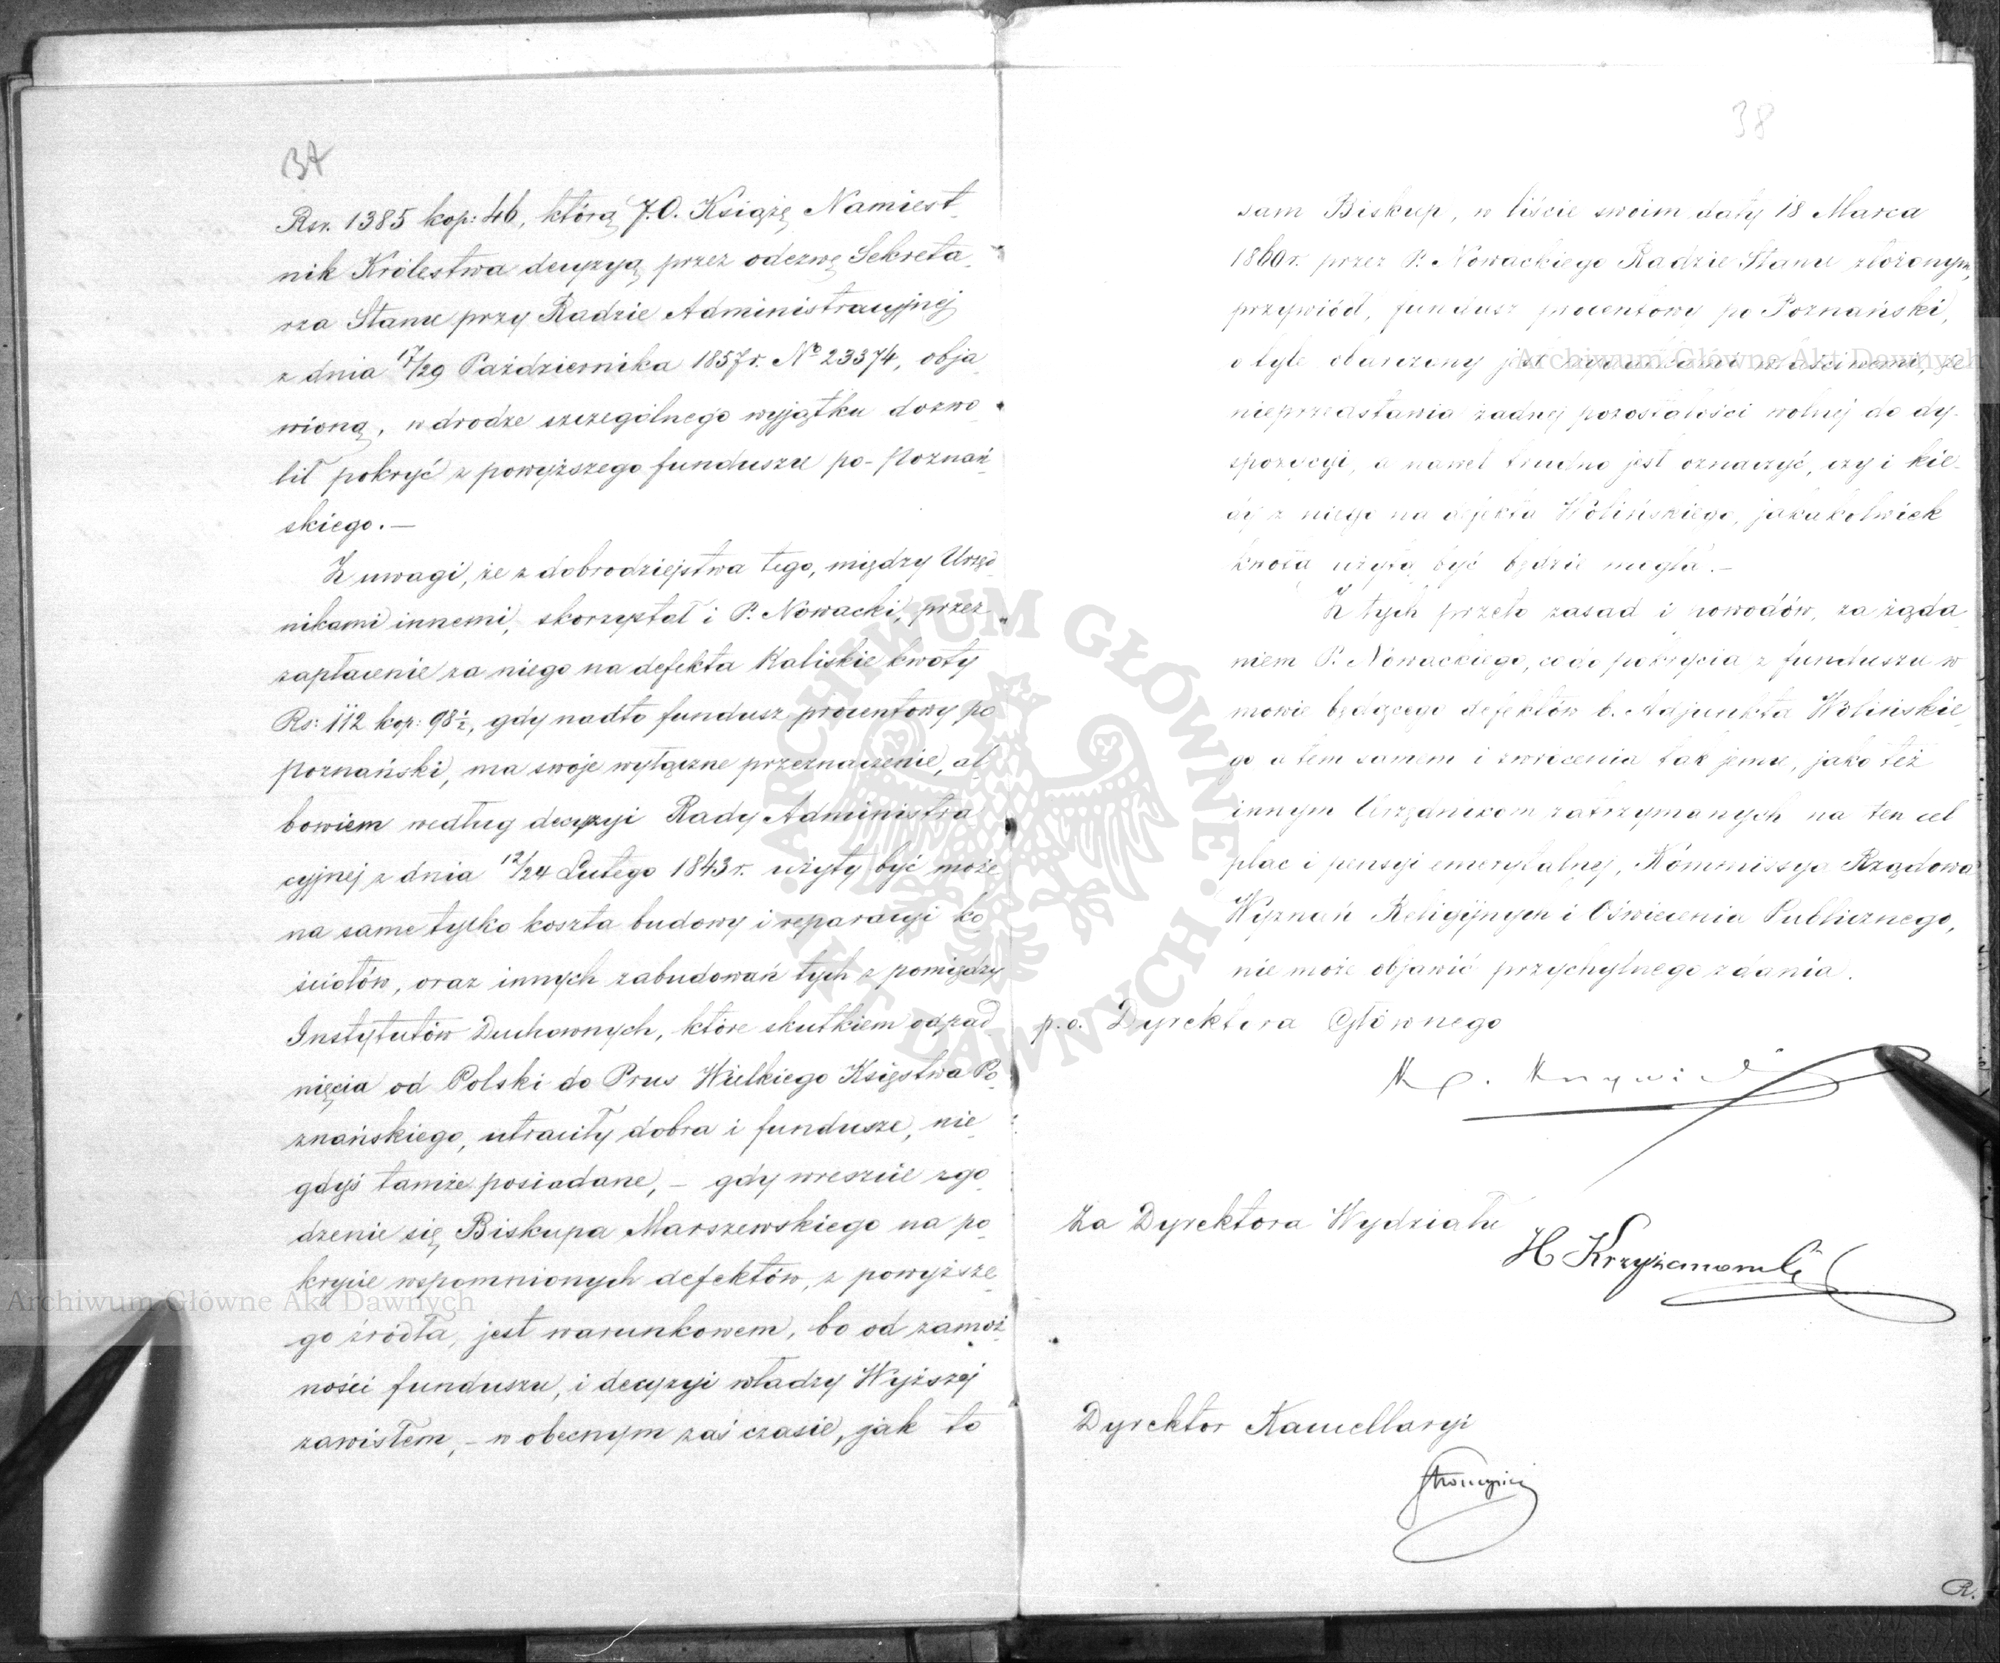 37
Rsr. 1385 kop: 46, którą J.O. Książę Namiest-
nik Królestwa decyzyą przez odezwę Sekreta-
rza Stanu przy Radzie Administracyjnej
z dnia 17/29 Października 1857 r. No 23374, obja-
wioną, w drodze szczególnego wyjątku dozwo-
lił pokryć z powyższego funduszu po-Poznań-
skiego. —
Z uwagi, że z dobrodziejstwa tego, między Urzęd-
nikami innemi, skorzystał i P. Nowacki, przez
zapłacenie za niego na defekta Kaliskie kwoty
Rs: 112 kop: 98½, gdy nadto fundusz procentowy po
poznański, ma swoje wyłączne przeznaczenie, al-
bowiem według decyzyi Rady Administra-
cyjnej z dnia 12/24 Lutego 1843 r. użyty być może
na same tylko koszta budowy i reparacyi ko-
ściołów, oraz innych zabudowań tych z pomiędzy
Instytutów Duchownych, które skutkiem odpad-
nięcia od Polski do Prus Wielkiego Księstwa Po-
znańskiego, utraciły dobra i fundusze, nie-
gdyś tamże posiadane, — gdy wreszcie zgo-
dzenie się Biskupa Marszewskiego na po-
krycie wspomnionych defektów, z powyższe-
go źródła, jest warunkowem, bo od zamoż-
ności funduszu, i decyzyi władzy Wyższej
zawisłem, — w obecnym zaś czasie, jak to
38
sam Biskup, w liście swoim daty 18 Marca
1860 r. przez P. Nowackiego Radzie Stanu złożonym,
przywiódł, fundusz procentowy po Poznański,
o tyle obarczony jest wydatkami właściwemi, że
nieprzedstawia żadnej pozostałości wolnej do dy-
spozycyi, a nawet trudno jest oznaczyć, czy i kie-
dy z niego na defekta Wolińskiego, jakakolwiek
kwota użytą być będzie mogła. —
Z tych przeto zasad i powodów, za żąda-
niem P. Nowackiego, co do pokrycia z funduszu w
mowie będącego defektów b. Adjunkta Wolińskie-
go a tem samem i zwrócenia tak jemu, jako też
innym Urzędnikom zatrzymanych na ten cel
płac i pensyi emerytalnej, Kommissya Rządowa
Wyznań Religijnych i Oświecenia Publicznego,
nie może objawić przychylnego zdania.
p.o. Dyrektora Głównego
Za Dyrektora Wydziału
H Krzyżanowski
Dyrektor Kancellaryi
R.
Archiwum Główne Akt Dawnych
Archiwum Główne Akt Dawnych
ARCHIWUM GŁÓWNE AKT DAWNYCH